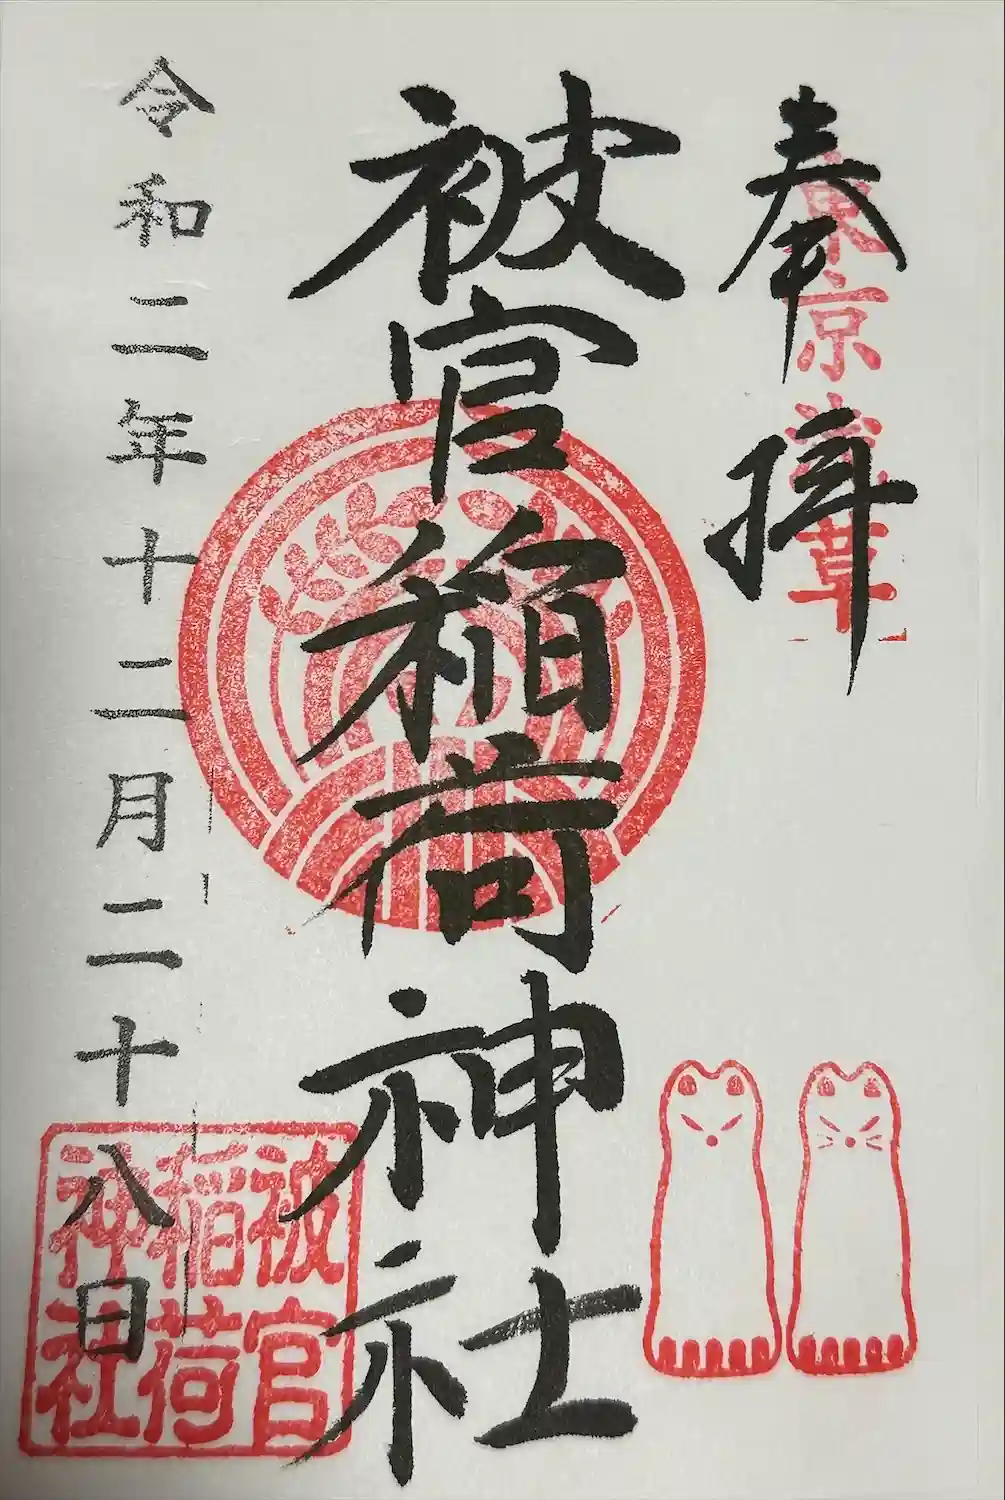 奉拝
東京浅草
被官稲荷神社
令和二年十二月二十八日
被官
稲荷
神社